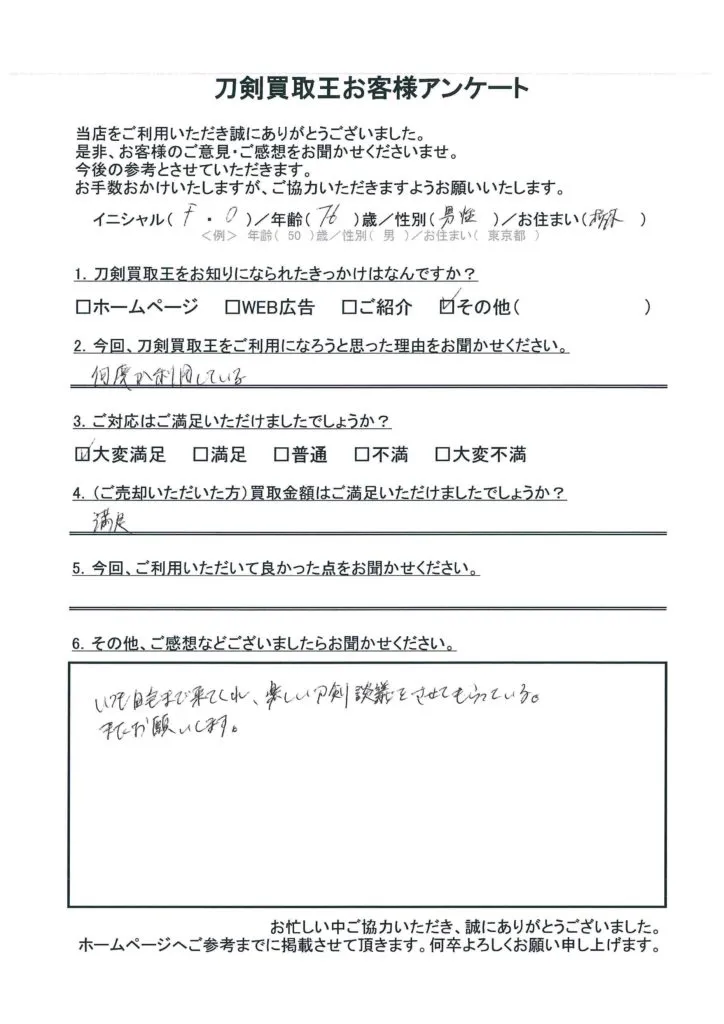 刀剣買取王お客様アンケート
当店をご利用いただき誠にありがとうございました。
是非、お客様のご意見・ご感想をお聞かせくださいませ。
今後の参考とさせていただきます。
お手数おかけいたしますが、ご協力いただきますようお願いいたします。
イニシャル( F ・ O )／年齢( 76 )歳／性別( 男性 )／お住まい( 栃木 )
＜例＞ 年齢( 50 )歳／性別( 男 )／お住まい( 東京都 )
1. 刀剣買取王をお知りになられたきっかけはなんですか？
□ホームページ □WEB広告 □ご紹介 ☑その他( )
2. 今回、刀剣買取王をご利用になろうと思った理由をお聞かせください。
何度か利用している
3. ご対応はご満足いただけましたでしょうか？
☑大変満足 □満足 □普通 □不満 □大変不満
4. （ご売却いただいた方）買取金額はご満足いただけましたでしょうか？
満足
5. 今回、ご利用いただいて良かった点をお聞かせください。
6. その他、ご感想などございましたらお聞かせください。
いつも自宅まで来てくれ、楽しい刀剣談義をさせてもらっている。
またお願いします。
お忙しい中ご協力いただき、誠にありがとうございました。
ホームページへご参考までに掲載させて頂きます。何卒よろしくお願い申し上げます。